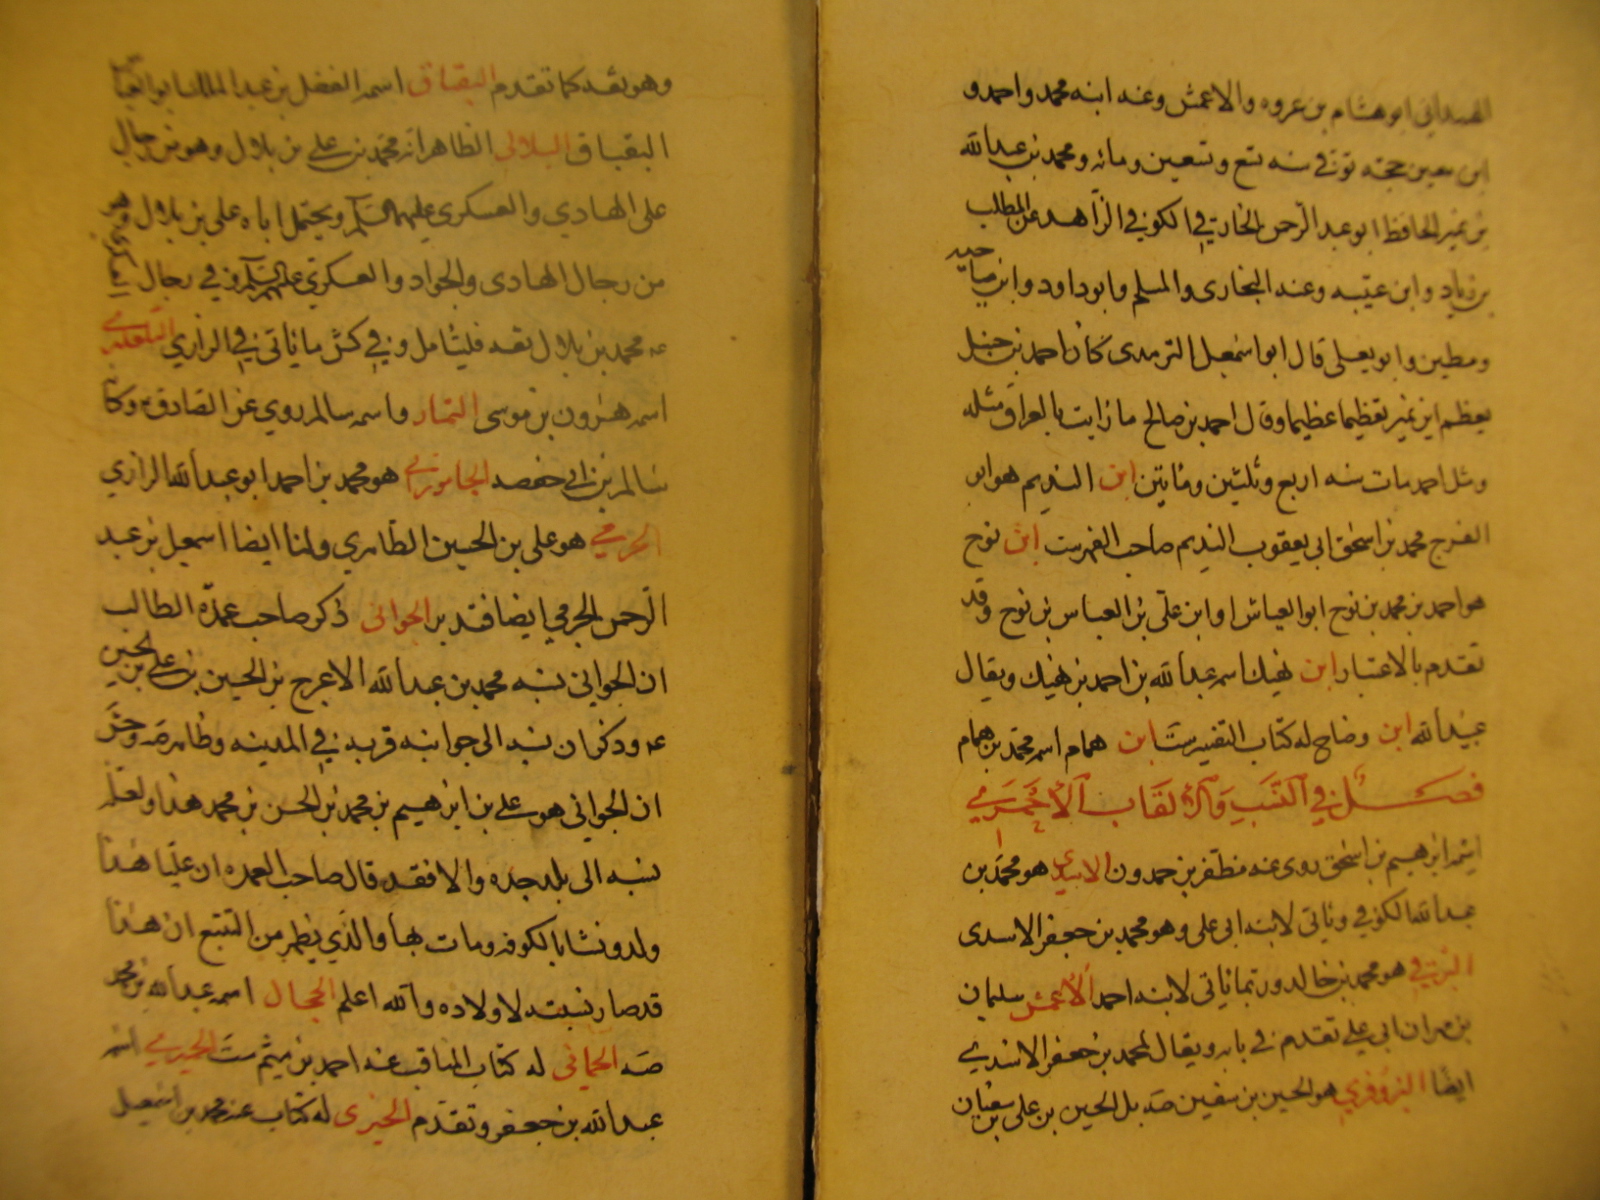 الهمداني ابو هشام بن عروه والاعمش وعنه ابنه محمد واحمد و
ابن معين حجته توفي سنه تسع وتسعين ومائه ومحمد بن عبدالله
بن نمير الحافظ ابو عبد الرحمن الخارفي الكوفي الزاهد عن المطلب
بن زياد وابن عيينه وعنه البخارى والمسلم وابوداود وابن ماجه
ومطين وابو يعلى قال ابو اسمعيل الترمدى كان احمد بن حنبل
يعظم ابن نمير تعظيما عظيما وقال احمد بن صالح ما رايت بالعراق مثله
ومثل احمد مات سنه اربع وثلثين ومأتين ابن النديم هو ابو
الفرج محمد بن اسحق ابي يعقوب النديم صاحب الفهرست ابن نوح
هو احمد بن محمد بن نوح ابو العباس او ابن علي بن العباس بن نوح وقد
تقدم بالاعتبار ابن نهيك اسمه عبدالله بن احمد بن نهيك ويقال
عبيدالله ابن وضاح له كتاب التفسير ست ابن همام اسمه محمد بن همام
فصل في النسب والالقاب الاحمري
اسمه ابرهيم بن اسحق روى عنه مظفر بن حمدون هو محمد بن
عبدالله الكوفي وياتى لابنه ابى على وهو محمد بن جعفر الاسدى
البرقي هو محمد بن خالد وربما ياتى لابنه احمد الاعمش سليمان
بن مهران ابى علي تقدم في بابه ويقال لمحمد بن جعفر الاسدي
ايضا البزوفري هو الحسين بن سفين صه بل الحسين بن على بن سفيان
وهو ثقه كما تقدم البقباق اسمه الفضل بن عبد الملك ابو العباس
البقباق البلالى الظاهر انه محمد بن علي بن بلال وهو من رجال
على الهادي والعسكرى عليهما السلم ويحتمل اباه على بن بلال وهو
من رجال الهادى والجواد والعسكري عليهم السلم وفي رجال
محمد بن بلال ثقه فليتامل وفي كش ما ياتى في الرازي التلعكبري
اسمه هرون بن موسى التمار واسمه سالم روي عن الصادق وكا
سالم بن ابى حفصه الجاموراني هو محمد بن احمد ابو عبدالله الرازي
الجرمي هو على بن الحسين الطاطري ولنا ايضا اسمعيل بن عبد
الرحمن الجرمي ايضا فتدبر الجوانى ذكر صاحب عمدة الطالب
ان الجواني نسبه محمد بن عبدالله الاعرج بن الحسين بن علي بن الحسين
وذكر ان نسبه الى جوانيه قريه في المدينه وظاهر صه وجش
ان الجواني هو علي بن ابرهيم بن محمد بن الحسن بن محمد هذا ولعله
نسبه الى بلد جده والا فقد قال صاحب العمده ان عليا هذا
ولد ونشا بالكوفه ومات بها والذي يظهر من التتبع ان هذا
قد صار نسبته لاولاده والله اعلم الحجال اسمه عبدالله بن محمد
صه الحمانى له كتاب المناقب عنه احمد بن ميثم ست الحميري اسمه
عبدالله بن جعفر وتقدم الخيبرى له كتاب عنه محمد بن اسمعيل